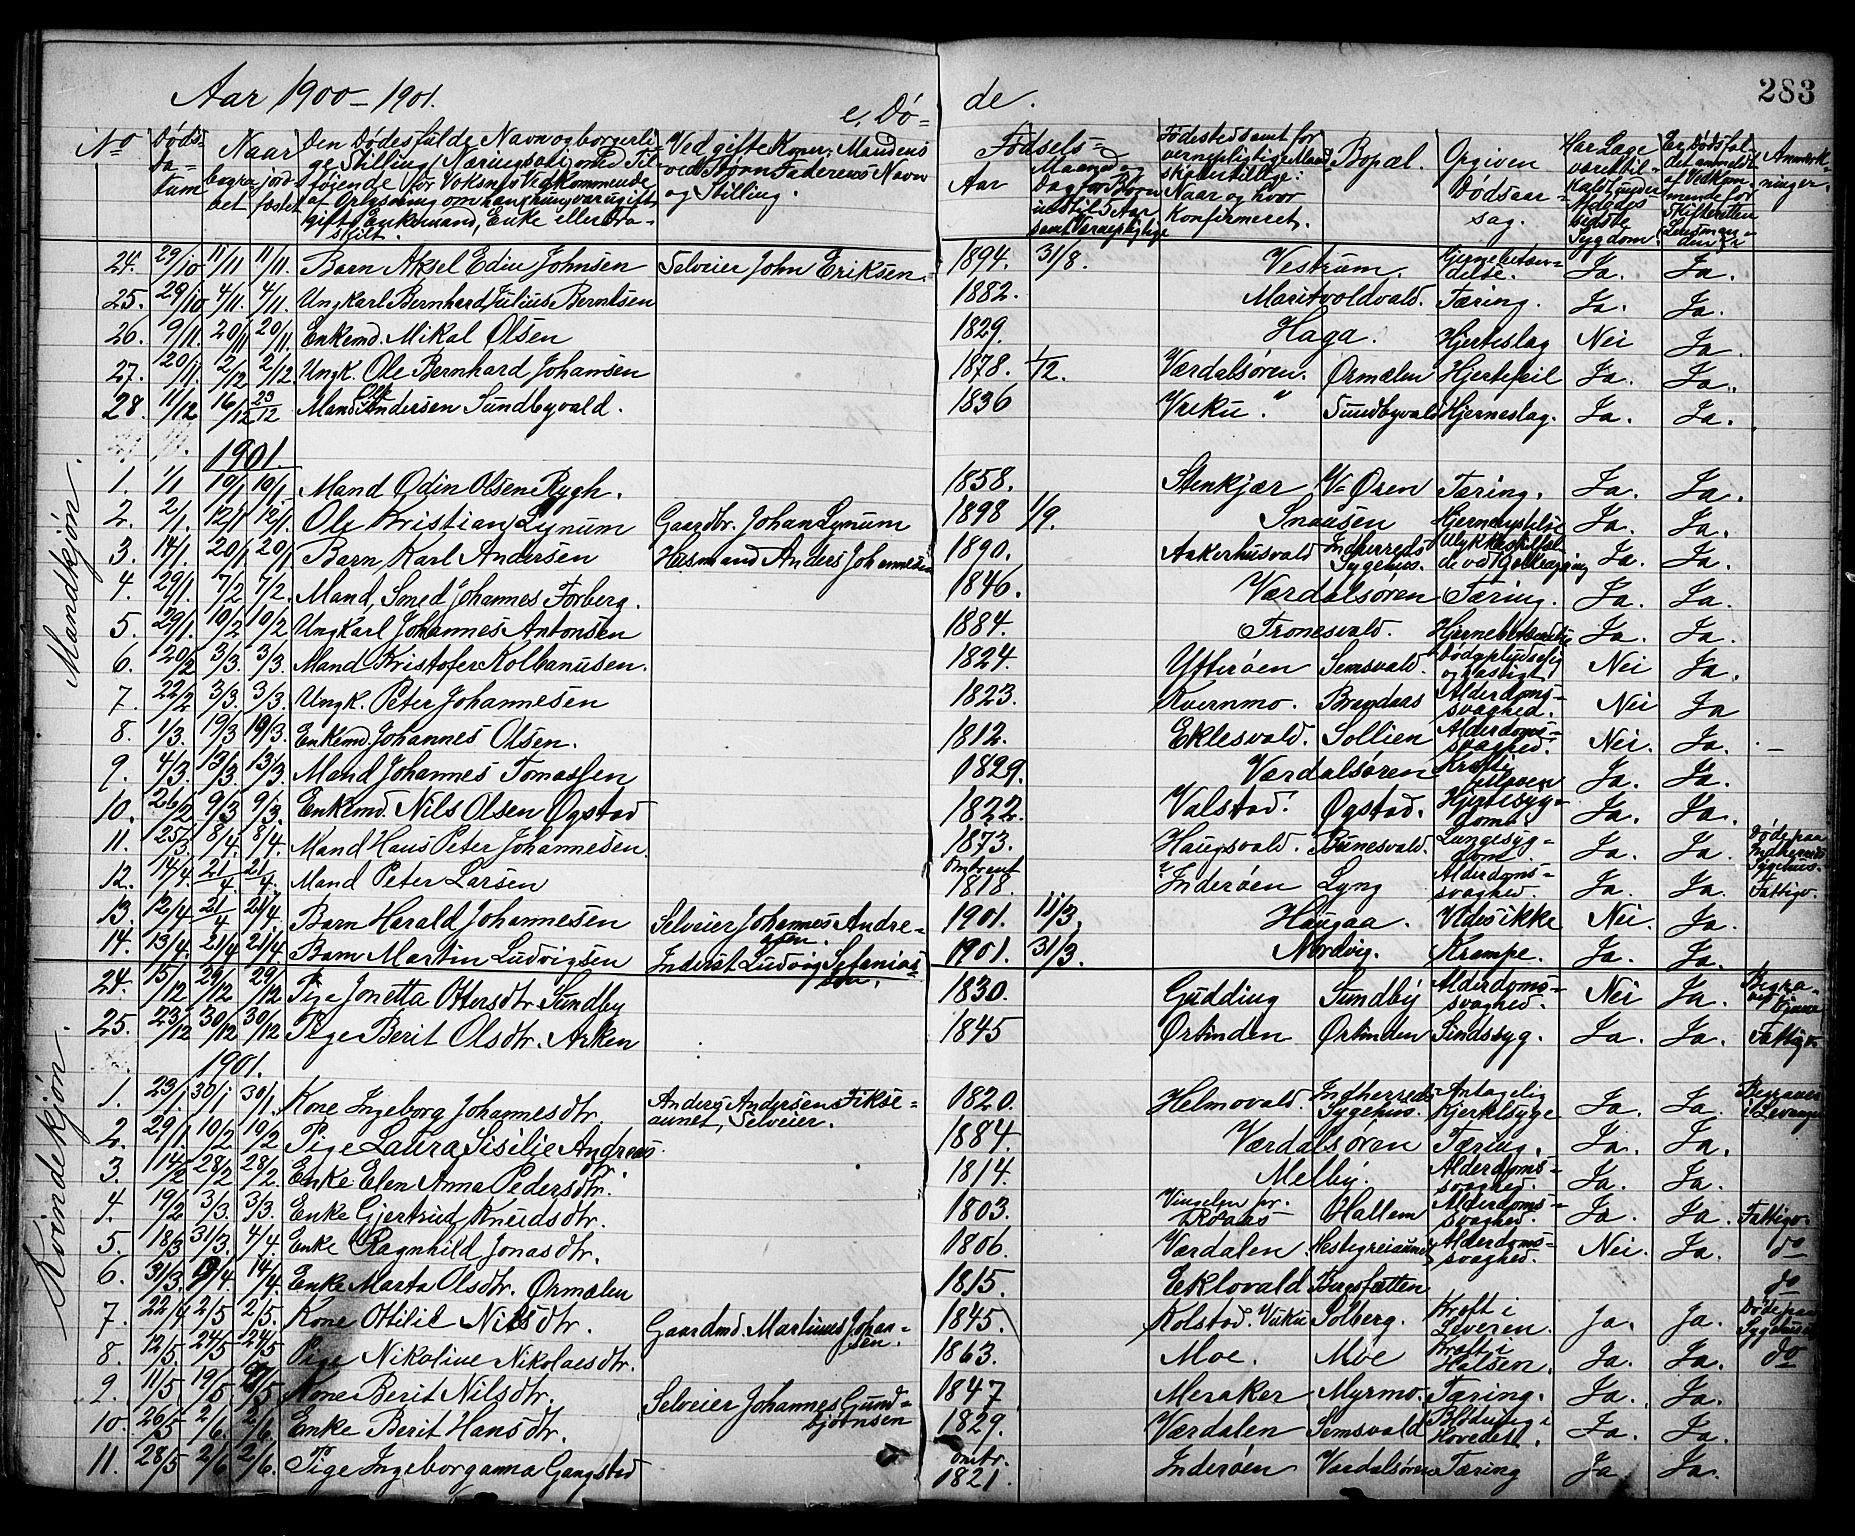 Aar 1900 – 1901. e, Dö= de. 283
No Døds-da-tum Naar begra-vet jord-fæstet Den Dødes fulde Navn og borgerlige Stilling (Næringsvei) med Tilføiende for Voksnes Vedkommende af Oplysning om han/hun var ugift, gift, Enkemand, Enke eller fraskilt. Ved gifte Koner: Mandens ved Børn Faderens Navn og Stilling. Fødsels= Aar Maaned og Dag for Børn indtil 5 Aar samt Værnepligtige Fødested samt for værnepligtige Mand-skaber tillige: Naar og hvor Konfirmeret. Bopæl. Opgiven Dødsaar=sag. Har Læge været til=kaldt under Afdødes sidste Sygdom. Er Dødsfal=det anmeldt af Vedkom=mende for Skifteretten Lensman=den Anmærk=ninger.
Mandkjøn.
24. 29/10 11/11 11/11. Barn Aksel Edin Johnsen Selveier John Eriksen. 1894. 31/8. Vestrum. Ja. Ja.
25. 29/10 4/11. 4/11. Ungkarl Bernhard Julius Berntsen 1882. Maritvoldvald. Tæring. Ja. Ja.
26. 9/11. 20/11 20/11. Enkemd. Mikal Olsen 1829. Haga. Hjerteslag Nei Ja.
27. 20/11. 2/12 2/12. Ungk. Ole Bernhard Johansen 1878. 1/12. Værdalsøren. Ørmælen Hjertefeil Ja. Ja.
28. 11/12 16/12 23/12 Mand Ole Andersen Sundbyvald. 1836 Vuku. Sundbyvald Hjerneslag. Ja. Ja.
1901.
1. 1/1 19/1 19/1. Mand Odin Olsen Rygh. 1858. Stenkjær V=Øren Tæring. Ja. Ja.
2. 2/1. 12/1 12/1. Ole Kristian Lynum Gaardbr. Johan Lynum 1898 1/9. Snausen Ja. Ja.
3. 14/1 20/1 20/1 Barn, Karl Andersen Husmand Anders Johannesen 1890. Aakerhusvald Indherreds Sygehus. Ulykkestilfæl de ved Kjelkeagning Ja. Ja.
4. 29/1. 7/2 7/2. Mand, Smed Johannes Forberg. 1846. Værdalsøren Tæring. Ja. Ja.
5. 29/1. 10/2 10/2 Ungkarl Johannes Antonsen 1884. Tronesvald. Ja. Ja.
6. 20/2 3/3. 3/3. Mand Kristofer Kolbanusen. 1824. Ytterøen Semsvald. Død pludselig og hastigt Nei Ja.
7. 22/2 3/3. 3/3. Ungk. Peter Johannesen 1823. Kvernmo. Brandaas Alderdoms=svaghed. Nei Ja
8. 1/3. 19/3 19/3. Enkemd. Johannes Olsen. 1812. Eklesvald. Sollien Alderdoms=svaghed. Nei. Ja.
9. 4/3. 13/3. 13/3. Mand Johannes Tomassen 1829. Værdalsøren Kræft i Maven Ja. Ja.
10. 26/2 9/3 9/3. Enkemd. Nils Olsen Øgstad 1822. Valstad. Øgstad. Hjertesyg=dom. Ja. Ja.
11. 25/3 8/4. 8/4. Mand Hans Peter Johannesen. 1873. Haugsvald. Bunesvald. Lungesyg=dom. Ja. Ja. Døde paa Indherreds Sygehus.
12. 14/4. 21/4 21/4. Mand Peter Larsen Omtrent 1818. Inderøen Lyng Alderdoms=svaghed. Ja. Ja. Fattigv.
13. 12/4 21/4 21/4. Barn Harald Johannesen Selveier Johannes Andre=asen. 1901. 11/3. Haugaa. Vides ikke Nei Ja.
14. 13/4. 21/4 21/4. Barn Martin Ludvigsen Inderst Ludvig Sefanias=sen. 1901. 31/3. Nordvig. Krampe. Ja. Ja.
Kvindekjøn.
24. 15/12 29/12 29/12 Pige Jonetta Ottersdtr Sundby 1830. Gudding Sundby Alderdoms=svaghed. Nei Ja.
25. 23/12 30/12 30/12 Pige Berit Olsdtr. Arken 1845 Ørtinden Ørtinden Sindssyg. Ja. Ja. Fattigv.
1901.
1. 23/1 30/1 30/1. Kone Ingeborg Johannesdtr. Anders Andersen Fikse=aunet, Selveier. 1820. Helmovald. Indherreds Sygehus. Antagelig Hjertesyge Ja. Ja. Begraves i Levanger
2. 29/1. 10/2 10/2 Pige Laura Sisilie Andreas 1884. Værdalsøren Tæring. Ja. Ja.
3. 14/2 28/2 28/2. Enke Elen Anna Pedersdtr. 1814. Melby. Alderdoms=svaghed. Ja. Ja.
4. 19/2 3/3. 3/3. Enke Gjertrud Knudsdtr. 1803. Vingelen pr. Røraas Hallem Alderdoms=svaghed. Ja. Ja. Fattigv.
5. 18/3 31/3. 4/4. Enke Ragnhild Jonasdtr. 1806. Værdalen Hestegreiaunet Alderdoms=svaghed. Nei. Ja. do
6. 31/3. 9/4. 14/4. Enke Marta Olsdtr. Ørmælen 1815. Eklovald Bergsfætten do
7. 22/4 2/5 2/5. Kone Ottilie Nilsdtr. Gaardmd. Martinus Johan=sen. 1845. Kolstad. Vuku Solberg. Kræft i Leveren. Ja. Ja. Døde paa Sygehuset
8. 12/5. 24/5 24/5. Pige Nikoline Nikolaesdtr. 1863. Moe. Moe Kræft i Halsen. Ja. Ja. do
9. 11/5 19/5 Kone Berit Nilsdtr. Selveier Johannes Gund=bjørnsen 1847 Meraker Myrmo. Tæring. Ja. Ja.
10. 26/5 2/6. 2/6. Enke Berit Hansdtr. 1829. Værdalen Semsvald Blødning i Hovedet. Ja. Ja.
11. 28/5 2/6 2/6. Pige Ingeborganna Gangstad omtr. 1821. Inderøen Værdalsøren Tæring Ja Ja.